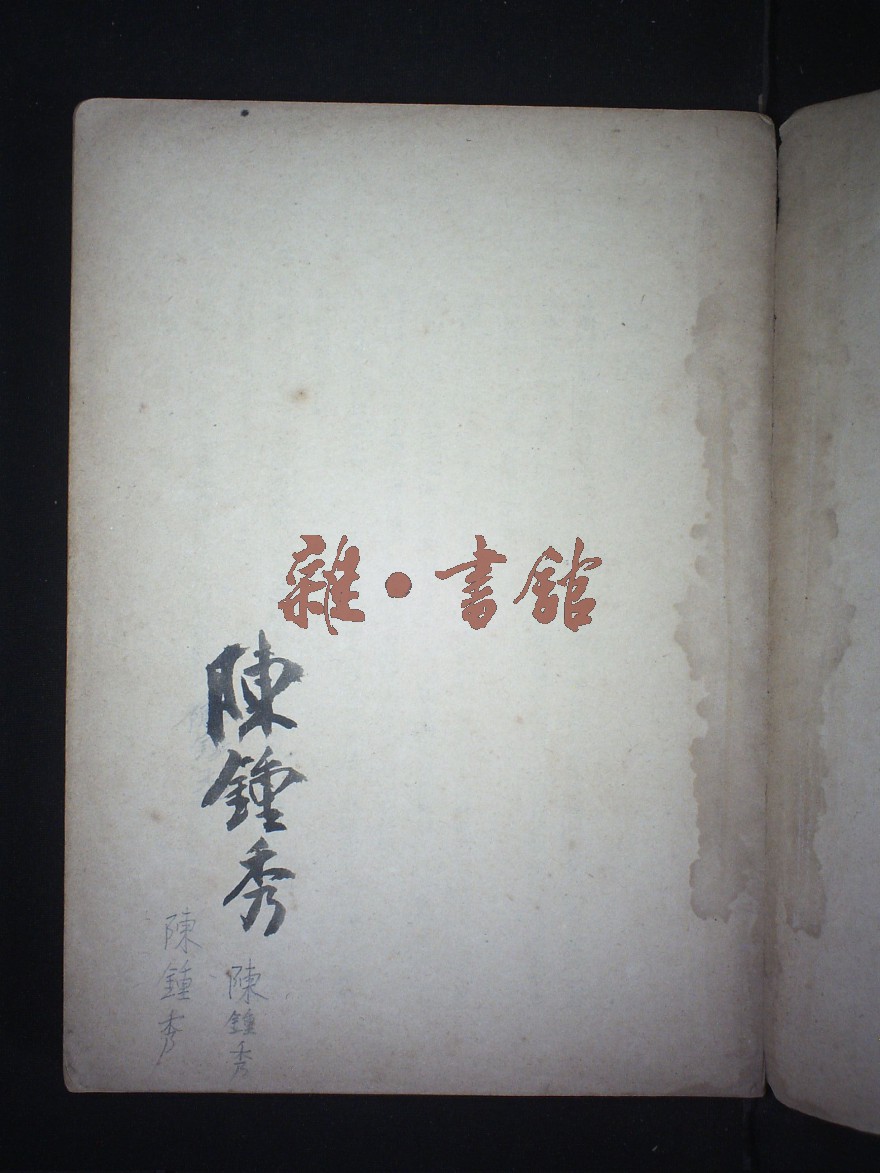 雜·書館
陳鍾秀
陳鍾秀
陳鍾秀